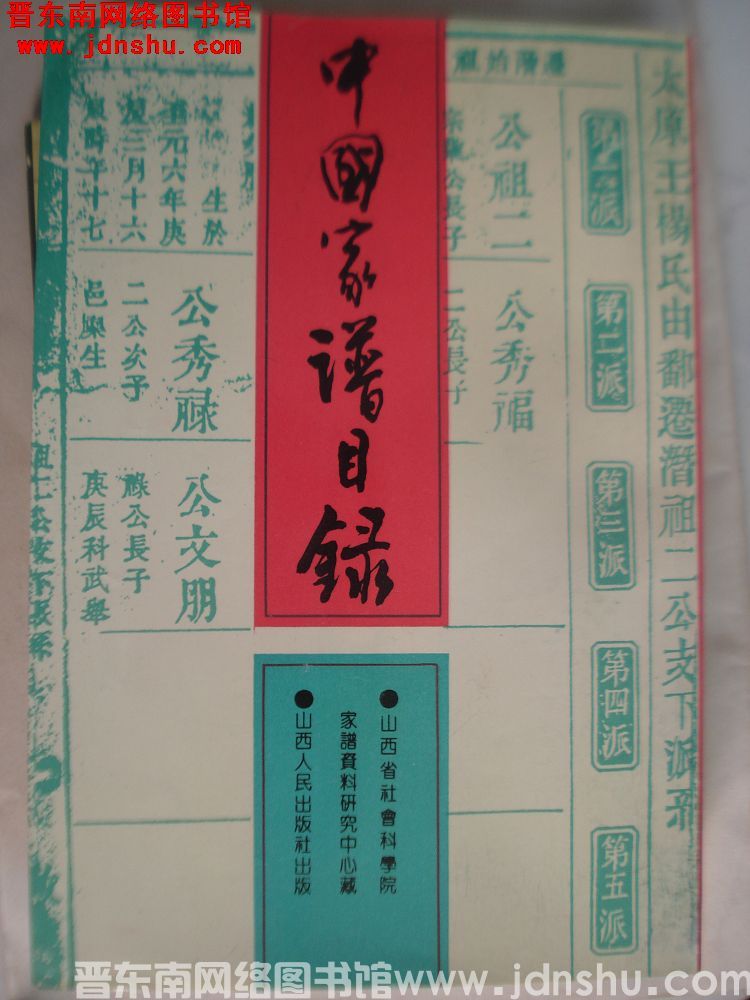 晋东南网络图书馆
www.jdnshu.com
中國家譜目録
●山西省社會科學院
家譜資料研究中心藏
●山西人民出版社出版
太原王楊氏由鄱遷潛祖二公支下派系
第一派
第二派
第三派
第四派
第五派
遷潛始祖
公祖二
公長子
公秀福
二公長子
生於
元六年庚
三月十六
時年十七
公秀祿
二公次子
邑庠生
公文朋
祿公長子
庚辰科武舉
晋东南网络图书馆 www.jdnshu.com